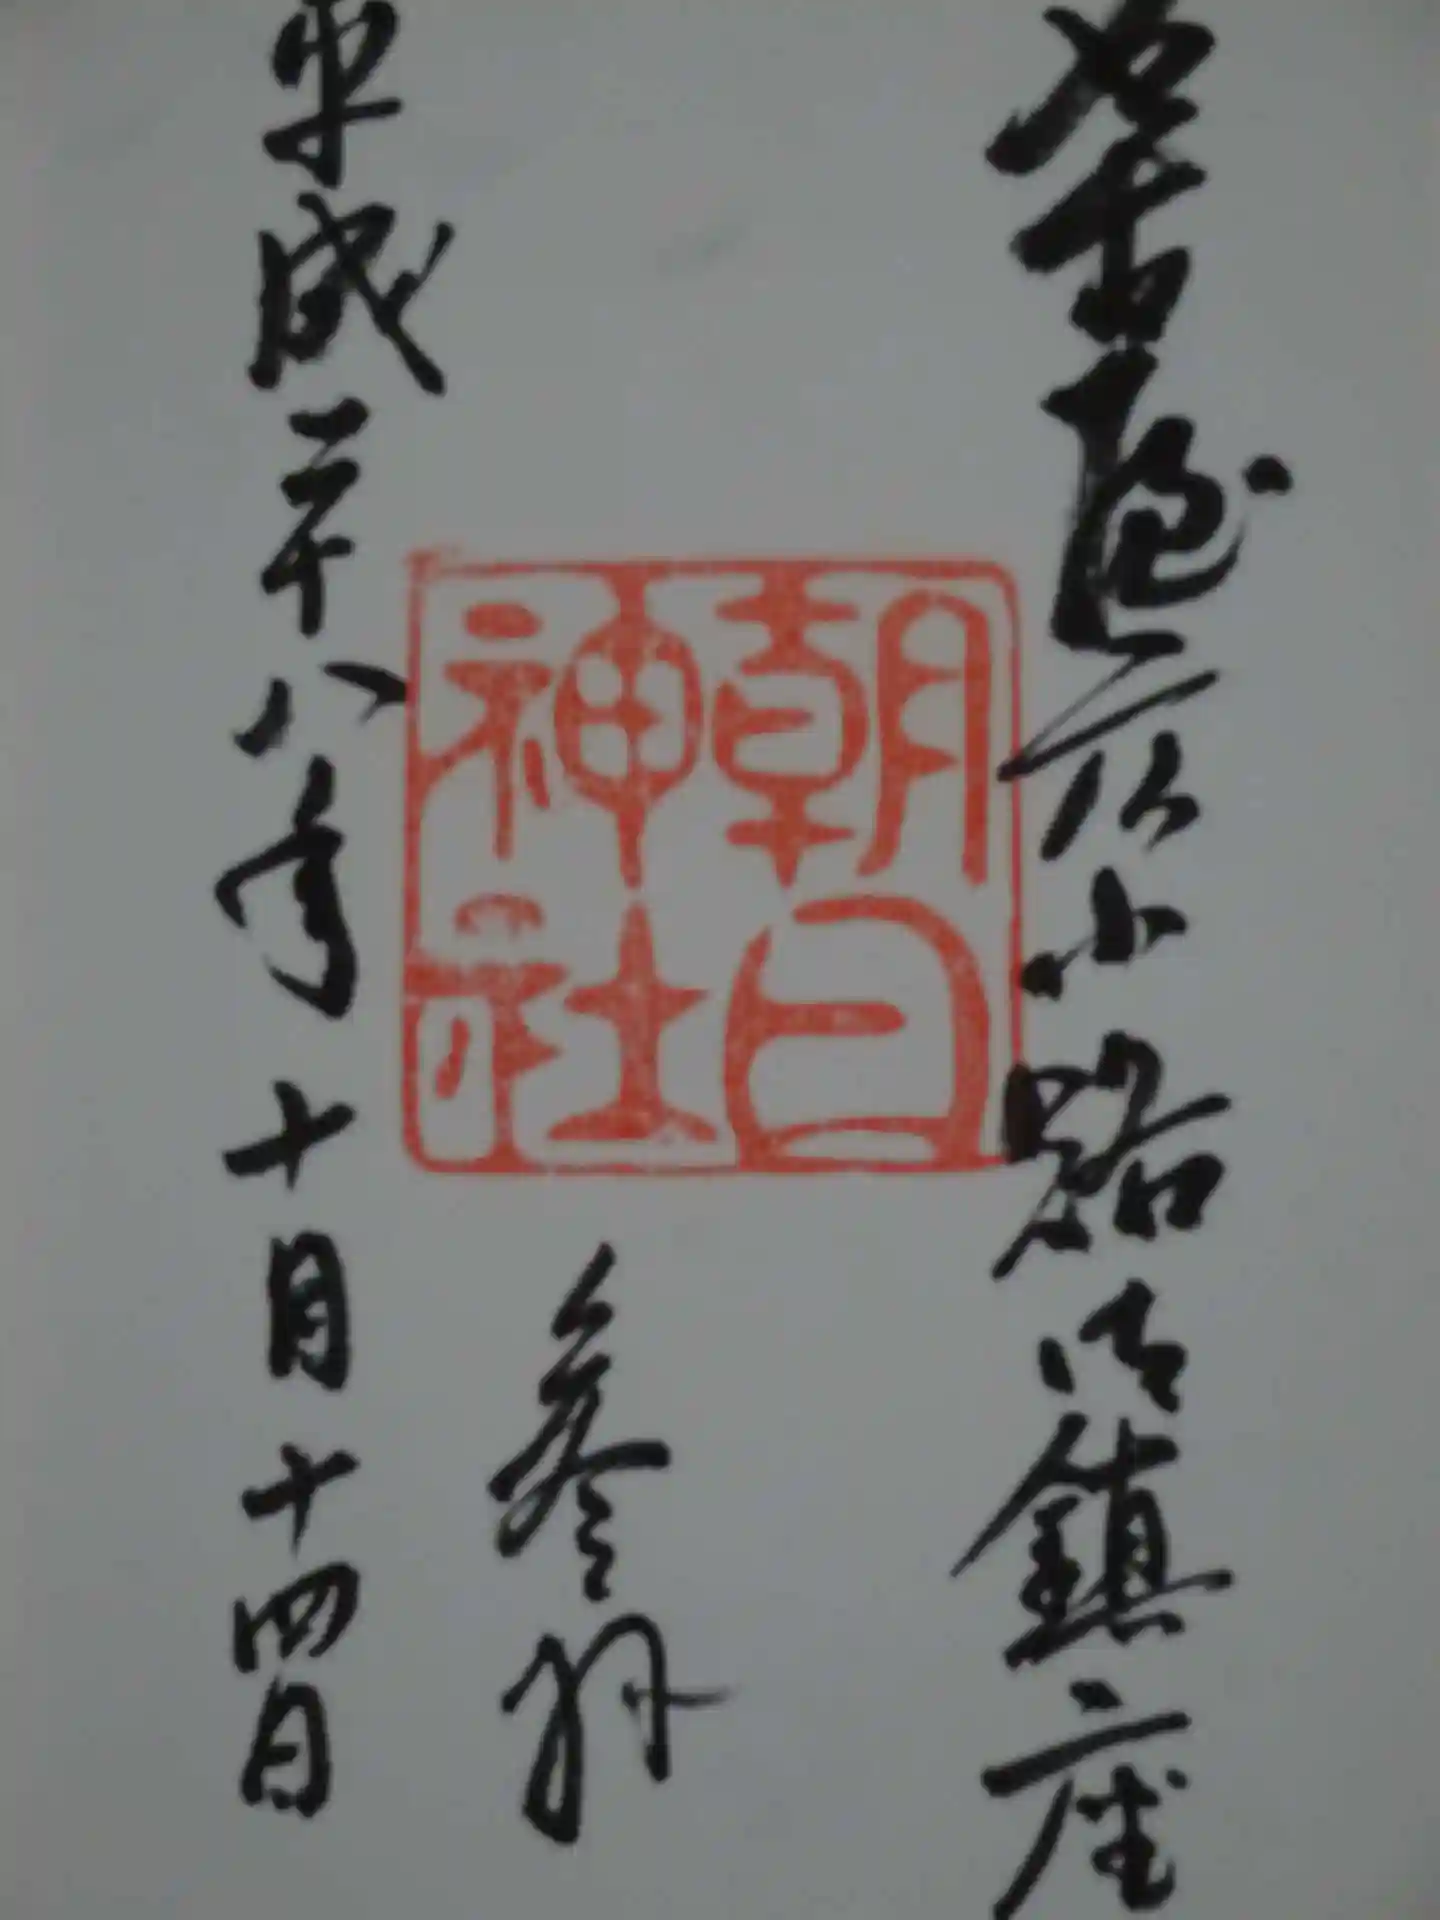 名古屋広小路御鎮座
朝日
神社
参拝
平成二十八年十月十四日